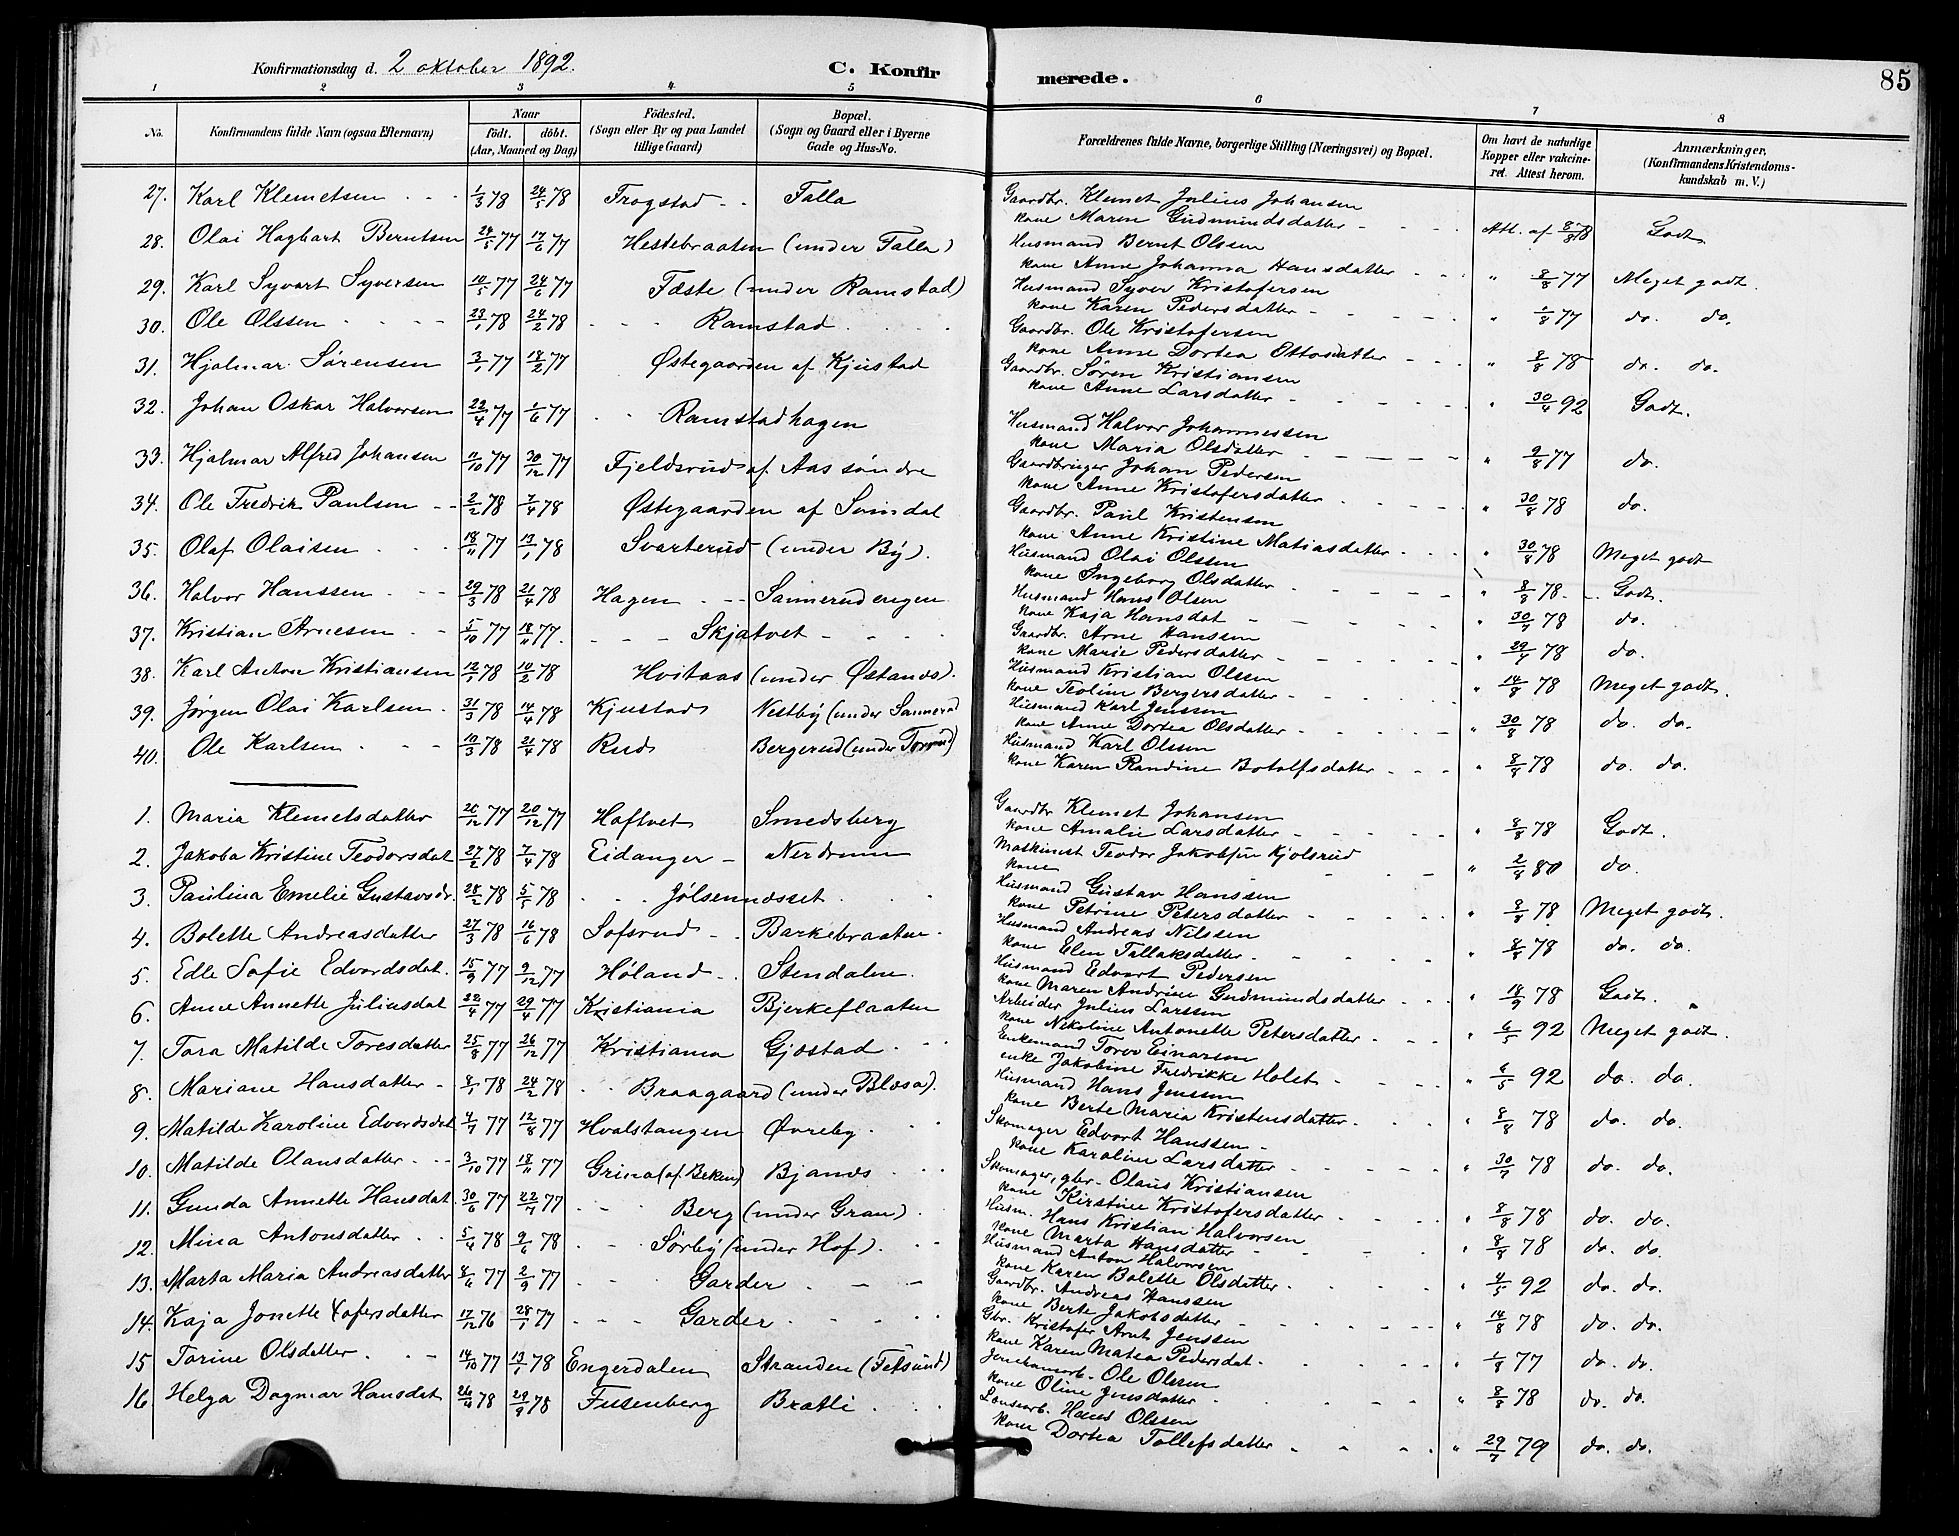 Konfirmationsdag d. 2 oktober 1892. C. Konfirmerede. 85
1 2 3 4 5 6 7 8
No. Konfirmandens fulde Navn (ogsaa Efternavn) Naar födt. döbt. (Aar, Maaned og Dag) Födested. (Sogn eller By og paa Landet tillige Gaard) Bopæl. (Sogn og Gaard eller i Byerne Gade og Hus-No. Forældrenes fulde Navne, borgerlige Stilling (Næringsvei) og Bopæl. Om havt de naturlige Kopper eller vakcineret. Attest herom. Anmærkninger. (Konfirmandens Kristendomskundskab m. V.)
27. Karl Klemetsen 1/3 78 24/5 78 Trøgstad Falla Gaardbr. Klemet Julius Johansen
kone Maren Gudmundsdatter Att. af 8/8 78 Godt.
28. Olai Hagbart Berntsen 24/5 77 17/6 77 Hestebraaten (under Falla) Husmand Bernt Olssen
kone Anne Johanna Hansdatter " 8/8 77 Meget godt.
29. Karl Syvert Syversen 10/5 77 24/6 77 Fæste (under Ramstad) Husmand Syver Kristofersen
kone Karen Pedersdatter " 1/8 77 do. do.
30. Ole Olssen 23/1 78 24/2 78 Ramstad Gaardbr. Ole Kristofersen
kone Anne Dortea Ottosdatter " 8/8 78 do. do.
31. Hjalmar Sørensen 3/1 77 18/2 77 Østegaarden af Kjustad Gaardbr. Søren Kristiansen
kone Anne Larsdatter " 30/4 92 Godt.
32. Johan Oskar Halvorsen 22/4 77 1/6 77 Ramstadhagen Husmand Halvor Johannessen
kone Maria Olsdatter " 9/8 77 do.
33. Hjalmar Alfred Johansen 11/10 77 30/12 77 Fjeldsrud af Aas søndre Gaardbruger Johan Pedersen
kone Anne Kristofersdatter " 30/8 78 do.
34. Ole Fredrik Paulsen 2/2 78 7/4 78 Østegaarden af Svindal Gaardbr. Paul Kristensen
kone Anne Kristine Matiasdatter " 30/8 78 Meget godt
35. Olaf Olaisen 18/11 77 13/1 78 Svarterud (under By). Husmand Olai Olssen
kone Ingeborg Olsdatter " 8/8 78 Godt.
36. Halvor Hanssen 29/3 78 21/4 78 Hagen Sannerudengen Husmand Hans Olsen
kone Kaja Hansdat " 30/7 78 do.
37. Kristian Arnesen 5/10 77 18/11 77. Skjatvet Gaardbr. Arne Hanssen
kone Marie Pedersdatter " 29/7 78 do.
38. Karl Anton Kristiansen 12/1 78 10/2 78 Hvitaas (under Østands). Husmand Kristian Olssen
kone Teoline Bergersdatter " 14/8 78 Meget godt.
39. Jørgen Olai Karlsen 31/3 78 14/4 78 Kjustad Nestby (under Sannerud Husmand Karl Jenssen
kone Anne Dortea Olsdatter " 30/8 78 do. do.
40. Ole Karlsen 10/3 78 21/4 78 Rud Bergerud (under Torrud) Husmand Karl Olssen
kone Karen Randine Botolfsdatter " 8/8 78 do. do.
1. Maria Klemetsdatter 77 20/12 77 Haftvet Smedsberg Gaardbr Klemet Johansen
kone Amalie Larsdatter " 8/8 78 Godt.
2. Jakoba Kristine Teodorsdat 27/2 78 7/4 78 Eidanger Nerdrum Maskinist Teodor Jakobsen Kjolsrud
kone " 2/8 80 do.
3. Paulina Emelie Gustavsdr. 28/2 78 5/5 78 Jølsennæsset Husmand Gustav Hanssen
kone Petrine Petersdatter " 8/8 78 Meget godt.
4. Bolette Andreasdatter 27/3 78 16/6 78 Sofsrud Barkebraaten Husmand Andreas Nilssen
kone Elen Tallaksdatter " 8/8 78 do. do.
5. Edle Sofie Edvardsdat. 15/9 77 9/12 77 Høland Stendalen. Husmand Edvart Pedersen
kone Maren Andrine Gudmundsdatter " 18/9 78 Godt. "
6. Anne Annette Juliusdat 22/4 77 29/4 77 Kristiania Bjerkeflaaten Arbeider Julius Larssen
kone Nikoline Antonette Petersdatter " 6/5 92 Meget godt.
7. Tora Matilde Toresdatter 25/8 77 26/12 77 Kristiania Gjøstad Enkemand Torer Einarsen
enke Jakobine Fredrikke Holst " 6/5 92 do. do.
8. Mariane Hansdatter 8/1 78 24/2 78 Braagaard (under Blæsa). Husmand Hans Jenssen
kone Berte Maria Kristensdatter " 8/8 78 do. do.
9. Matilde Karoline Edvardsdat 4/7 77 12/8 77 Hvalstangen Øvreby Skomager Edvart Hanssen
kone Karoline Larsdatter " 30/7 78 do. do.
10. Matilde Olausdatter 3/10 77 18/11 77 Grina (af ) Bjanes Skomager, gbr. Olaus Kristiansen
kone Kirstine Kristofersdatter " 8/8 78 do. do.
11. Gunda Annette Hansdat 30/6 77 22/7 77 Berg (under Gran) Husm. Hans Kristian Halvorsen
kone Marta Hansdatter " 8/8 78 do. do.
12. Mina Antonsdatter 5/4 78 9/6 78 Sørby (under Hof) Husmand Anton Halvorsen
kone Karen Bolette Olsdatter " 4/5 92 do. do.
13. Marta Maria Andreasdatter 8/6 77 2/9 77 Garder Gaardbr. Andreas Hanssen
kone Berte Jakobsdatter " 14/8 78 do. do.
14. Kaja Jonette Xofersdatter 17/12 76 28/1 77 Garder Gbr. Kristofer Arnt Jenssen
kone Karen Matea Pedersdat. " 1/8 77 do. do.
15 Torine Olsdatter 14/10 77 13/1 78 Engerdalen Stranden (Fetsund) Jernbanearb. Ole Olssen
kone Oline Jensdatter " 8/8 78 do. do.
16 Helga Dagmar Hansdat 78 29/9 78 Fusenberg Bratli Lensearb. Hans Olssen
kone Dortea Tollefsdatter " 29/7 79 do. do.